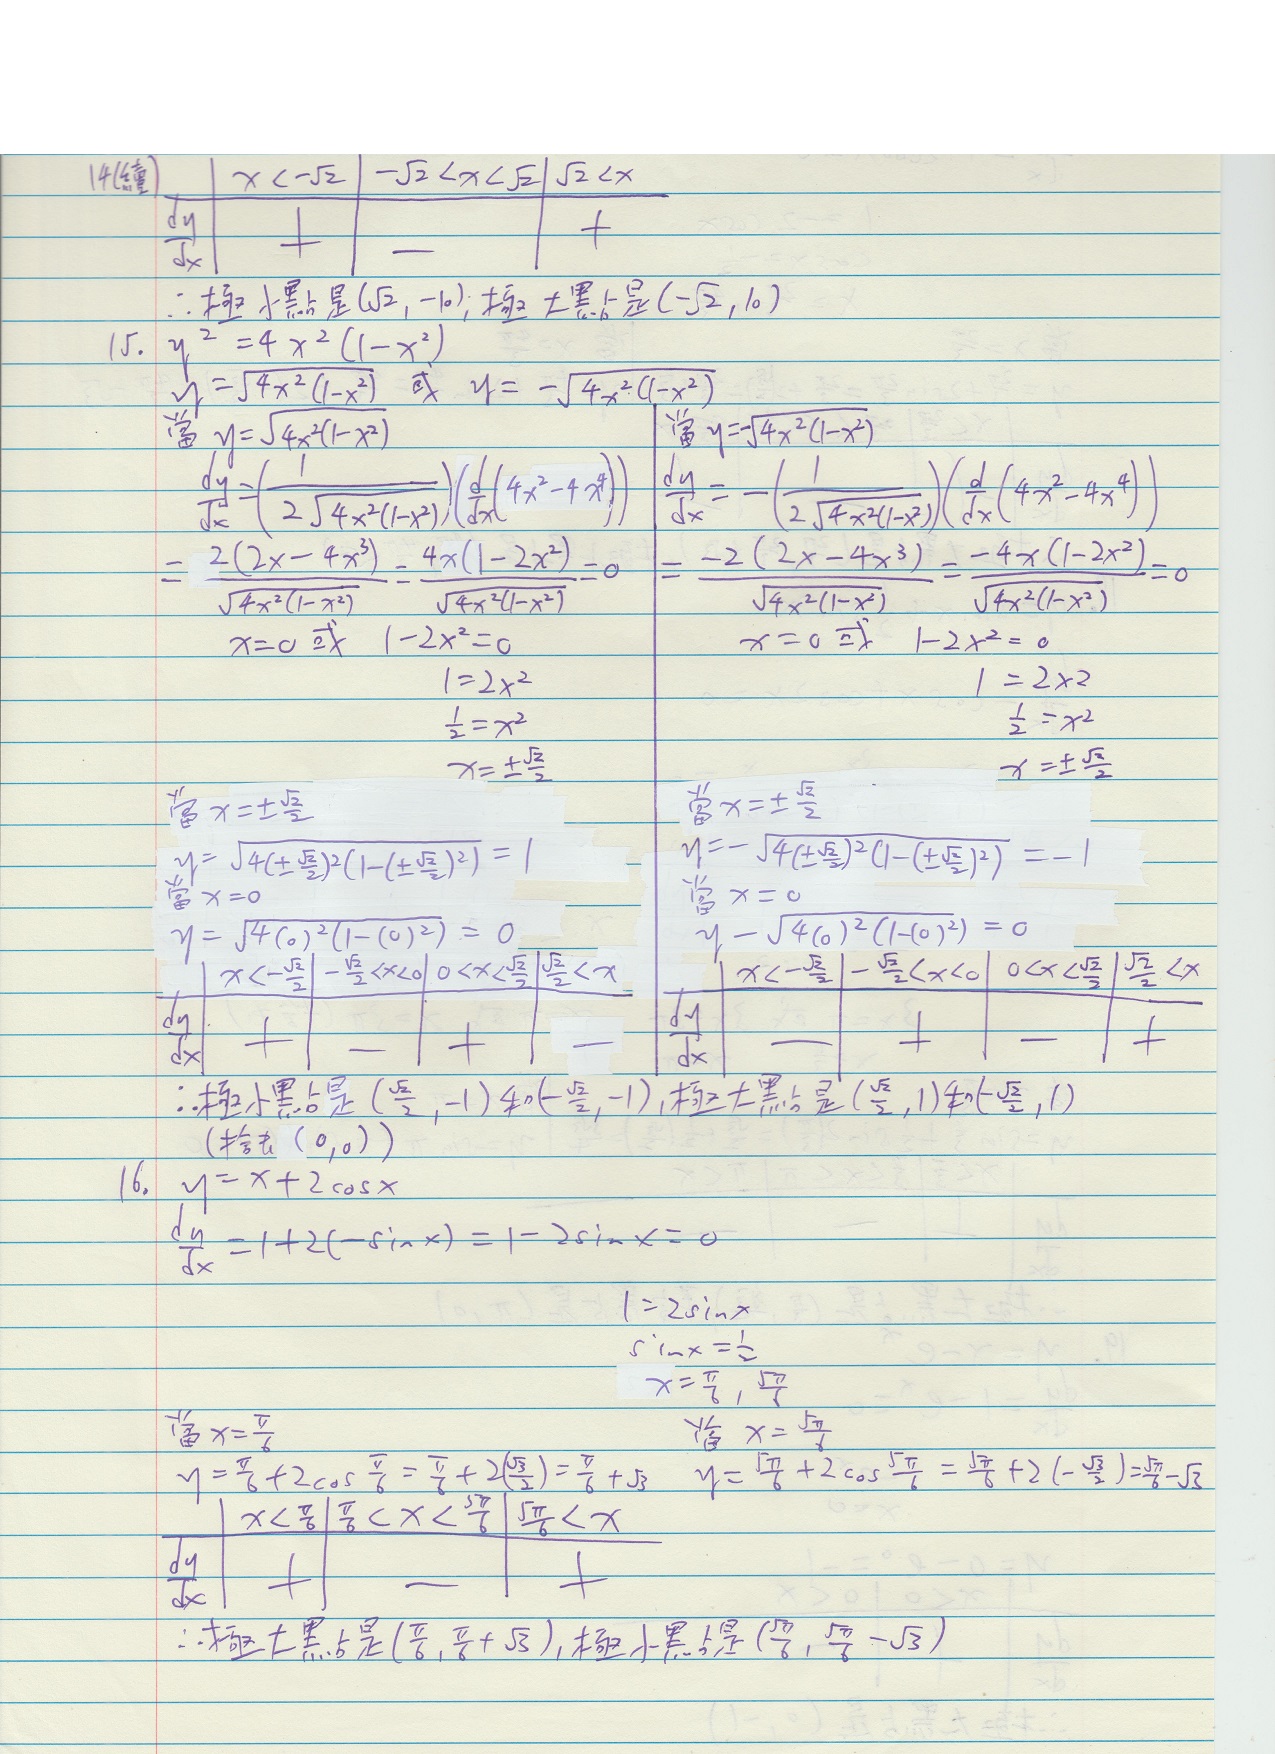 14(續) x < -√2 | -√2 < x < √2 | √2 < x
dy/dx + | − | +
∴極小點是(√2, -10), 極大點是(-√2, 10)
15. y² = 4x²(1-x²)
y = √(4x²(1-x²)) 或 y = -√(4x²(1-x²))
當 y = √(4x²(1-x²))
dy/dx = (1/(2√(4x²(1-x²))))(d/dx(4x²-4x⁴))
= 2(2x-4x³)/√(4x²(1-x²)) = 4x(1-2x²)/√(4x²(1-x²)) = 0
x=0 或 1-2x²=0
1=2x²
1/2=x²
x=±√2/2
當 x=±√2/2
y=√(4(±√2/2)²(1-(±√2/2)²)) = 1
當 x=0
y=√(4(0)²(1-(0)²)) = 0
x<-√2/2 | -√2/2<x<0 | 0<x<√2/2 | √2/2<x
dy/dx + | − | + | −
當 y=-√(4x²(1-x²))
dy/dx = -(1/(2√(4x²(1-x²))))(d/dx(4x²-4x⁴))
= -2(2x-4x³)/√(4x²(1-x²)) = -4x(1-2x²)/√(4x²(1-x²)) = 0
x=0 或 1-2x²=0
1=2x2
1/2=x²
x=±√2/2
當 x=±√2/2
y=-√(4(±√2/2)²(1-(±√2/2)²)) = -1
當 x=0
y-√(4(0)²(1-(0)²)) = 0
x<-√2/2 | -√2/2<x<0 | 0<x<√2/2 | √2/2<x
dy/dx − | + | − | +
∴極小點是(√2/2, -1)和(-√2/2, -1), 極大點是(√2/2, 1)和(-√2/2, 1)
(捨去 (0,0))
16. y=x+2cosx
dy/dx = 1+2(-sinx) = 1-2sinx = 0
1=2sinx
sinx=1/2
x=π/6, 5π/6
當 x=π/6
y=π/6+2cos π/6 = π/6+2(√3/2) = π/6+√3
當 x=5π/6
y=5π/6+2cos 5π/6 = 5π/6+2(-√3/2) = 5π/6-√3
x<π/6 | π/6<x<5π/6 | 5π/6<x
dy/dx + | − | +
∴極大點是(π/6, π/6+√3), 極小點是(5π/6, 5π/6-√3)